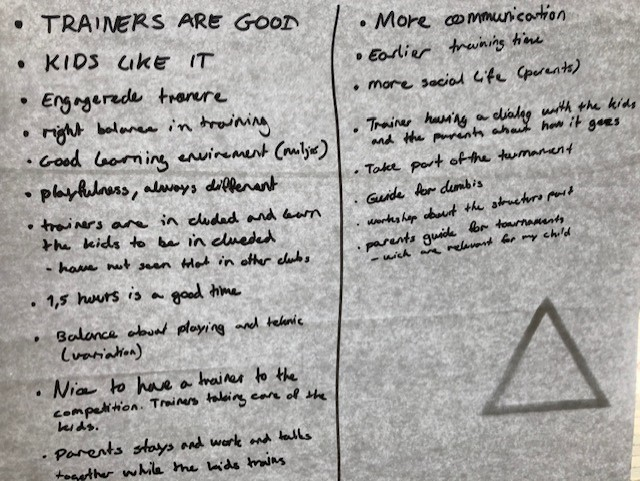 • TRAINERS ARE GOOD
• KIDS LIKE IT
• Engagerede trænere
• right balance in training
• Good learning enviremert (miljø)
• playfulness, always different
• trainers are in cluded and learn
the kids to be in clueded
- have not seen that in other clubs
• 1,5 hours is a good time
• Balance about playing and teknic
(variation)
• Nice to have a trainer to the
competition. Trainers taking care of the
kids.
• Parents stays and work and talks
together while the kids trains
• More communication
• Earlier training time
• more social life (parents)
• Trainer having a dialog with the kids
and the parents about how it goes
• Take part of the turnament
• Guide for dumbis
• workshop about the structure part
• parents guide for tournaments
- wich are relevant for my child